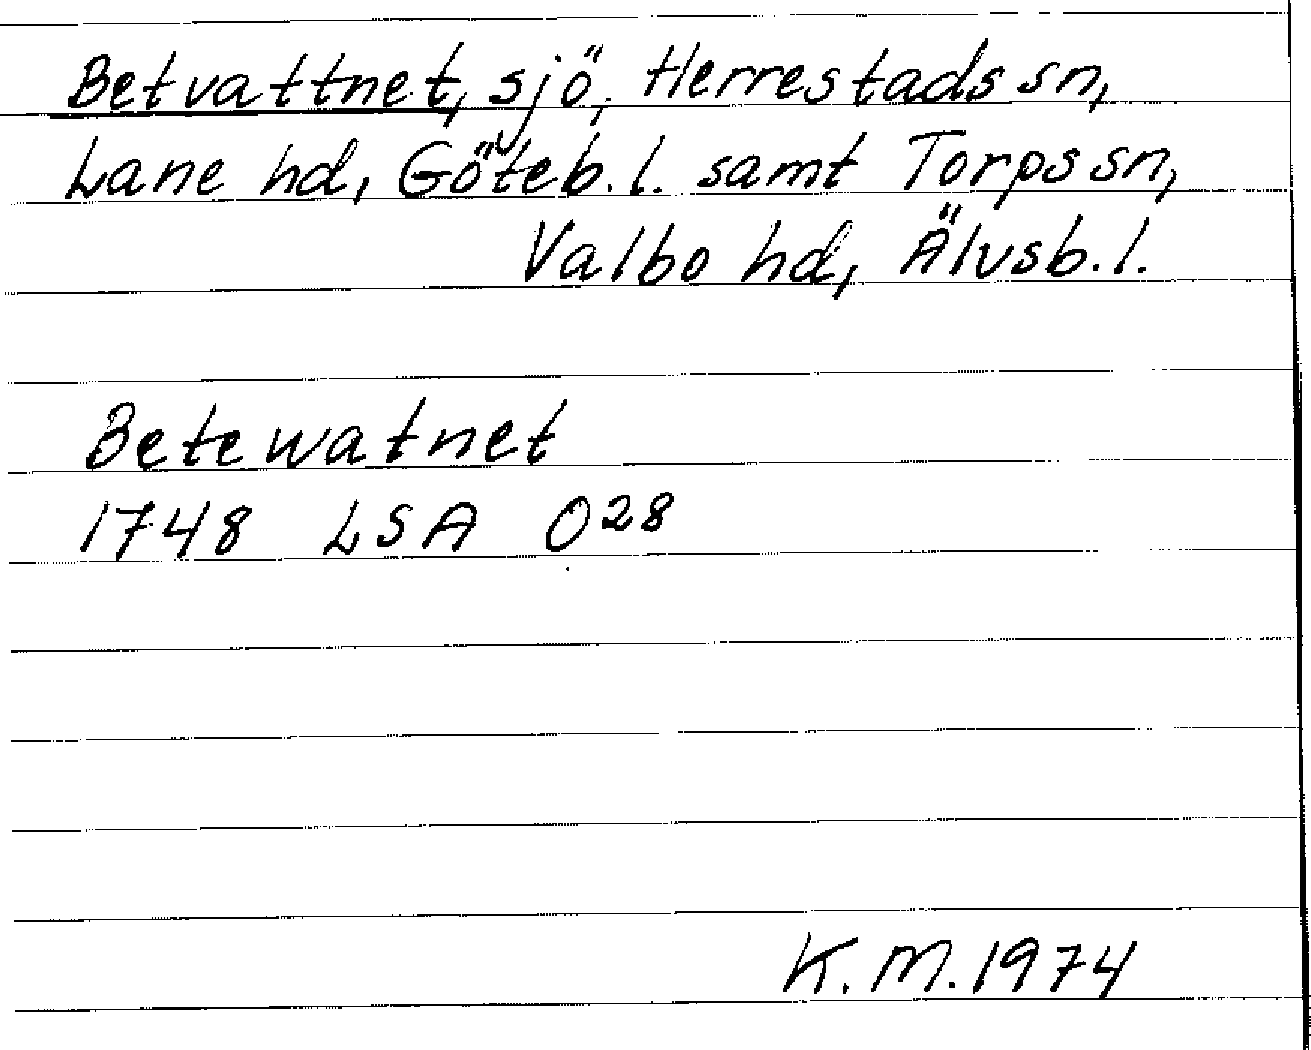 Betvattnet, sjö, Herrestads sn,
Lane hd, Göteb. l. samt Torps sn,
Valbo hd, Älvsb. l.
Betewatnet
1748 LSA O28
K. M. 1974